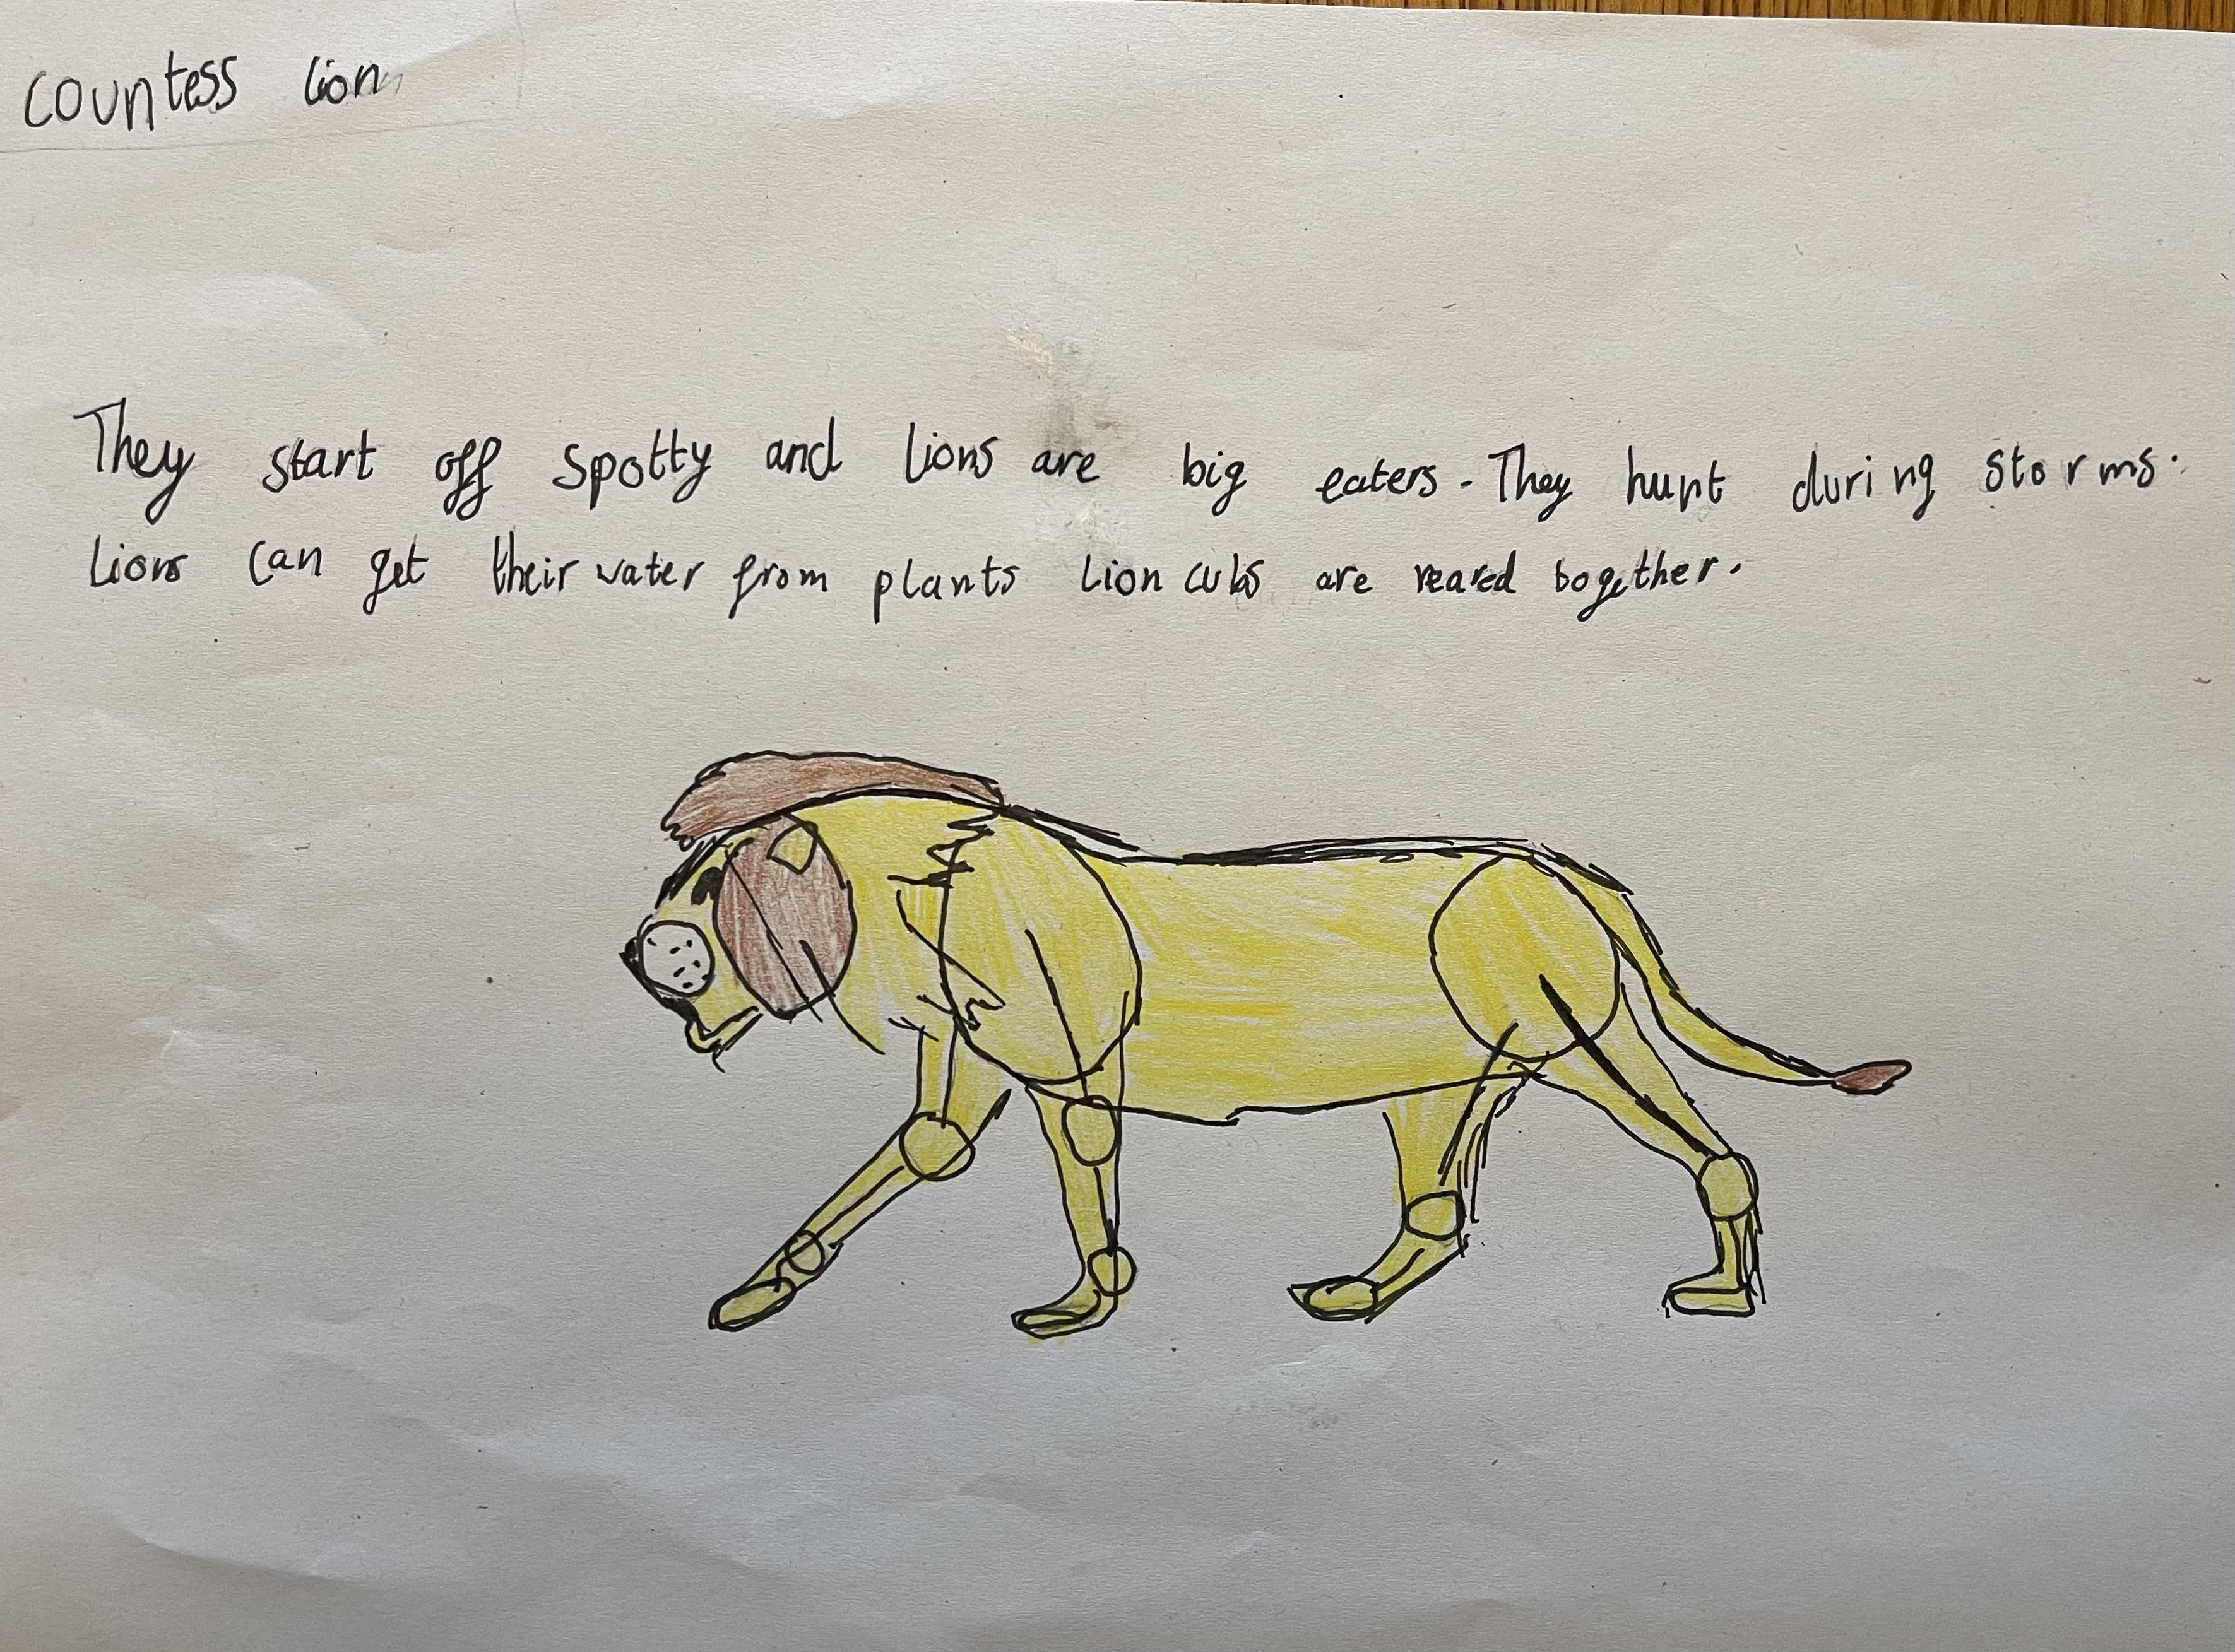 countess lion
They start off spotty and lions are big eaters. They hunt during storms.
Lions can get their water from plants Lion cubs are reared together.